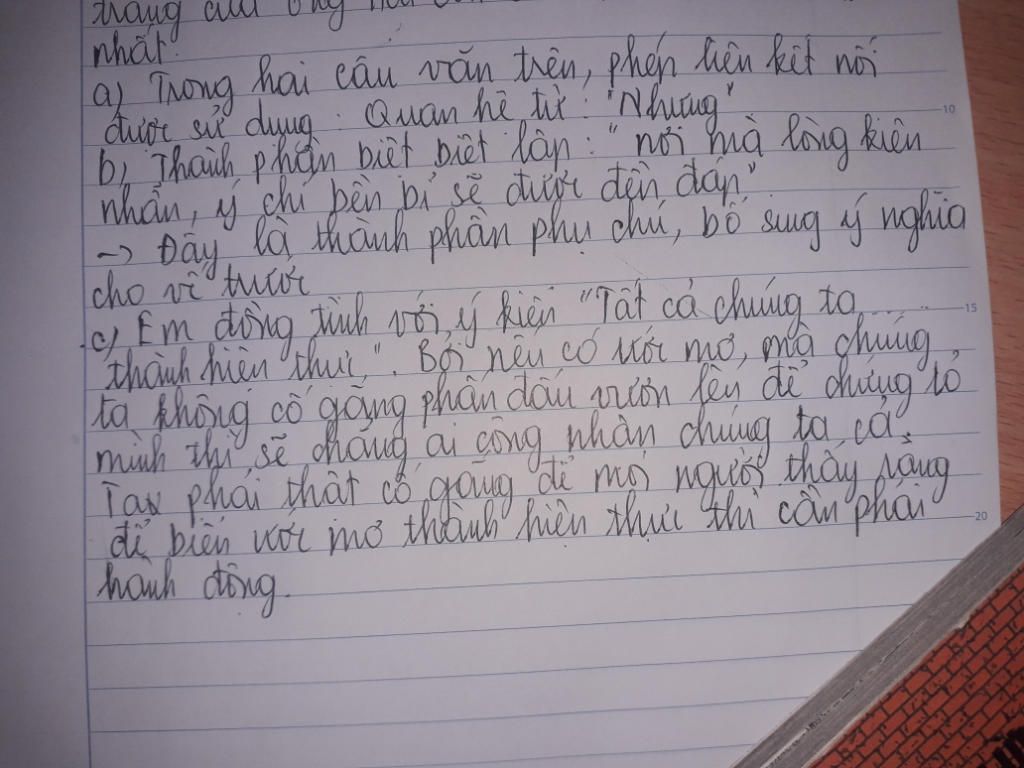 trạng của ông
nhất.
a) Trong hai câu văn trên, phép liên kết nối
được sử dụng : Quan hệ từ : "Nhưng"
b) Thành phần biệt biệt lập : "nơi mà lòng kiên
nhẫn, ý chí bền bỉ sẽ được đền đáp"
→ Đây là thành phần phụ chú, bổ sung ý nghĩa
cho vế trước
c) Em đồng tình với ý kiến "Tất cả chúng ta ........
thành hiện thực". Bởi nếu có ước mơ, mà chúng
ta không cố gắng phấn đấu vươn lên để chứng tỏ
mình thì sẽ chẳng ai công nhận chúng ta cả.
Ta phải thật cố gắng để mọi người thấy rằng
để biến ước mơ thành hiện thực thì cần phải
hành động.
10
15
20